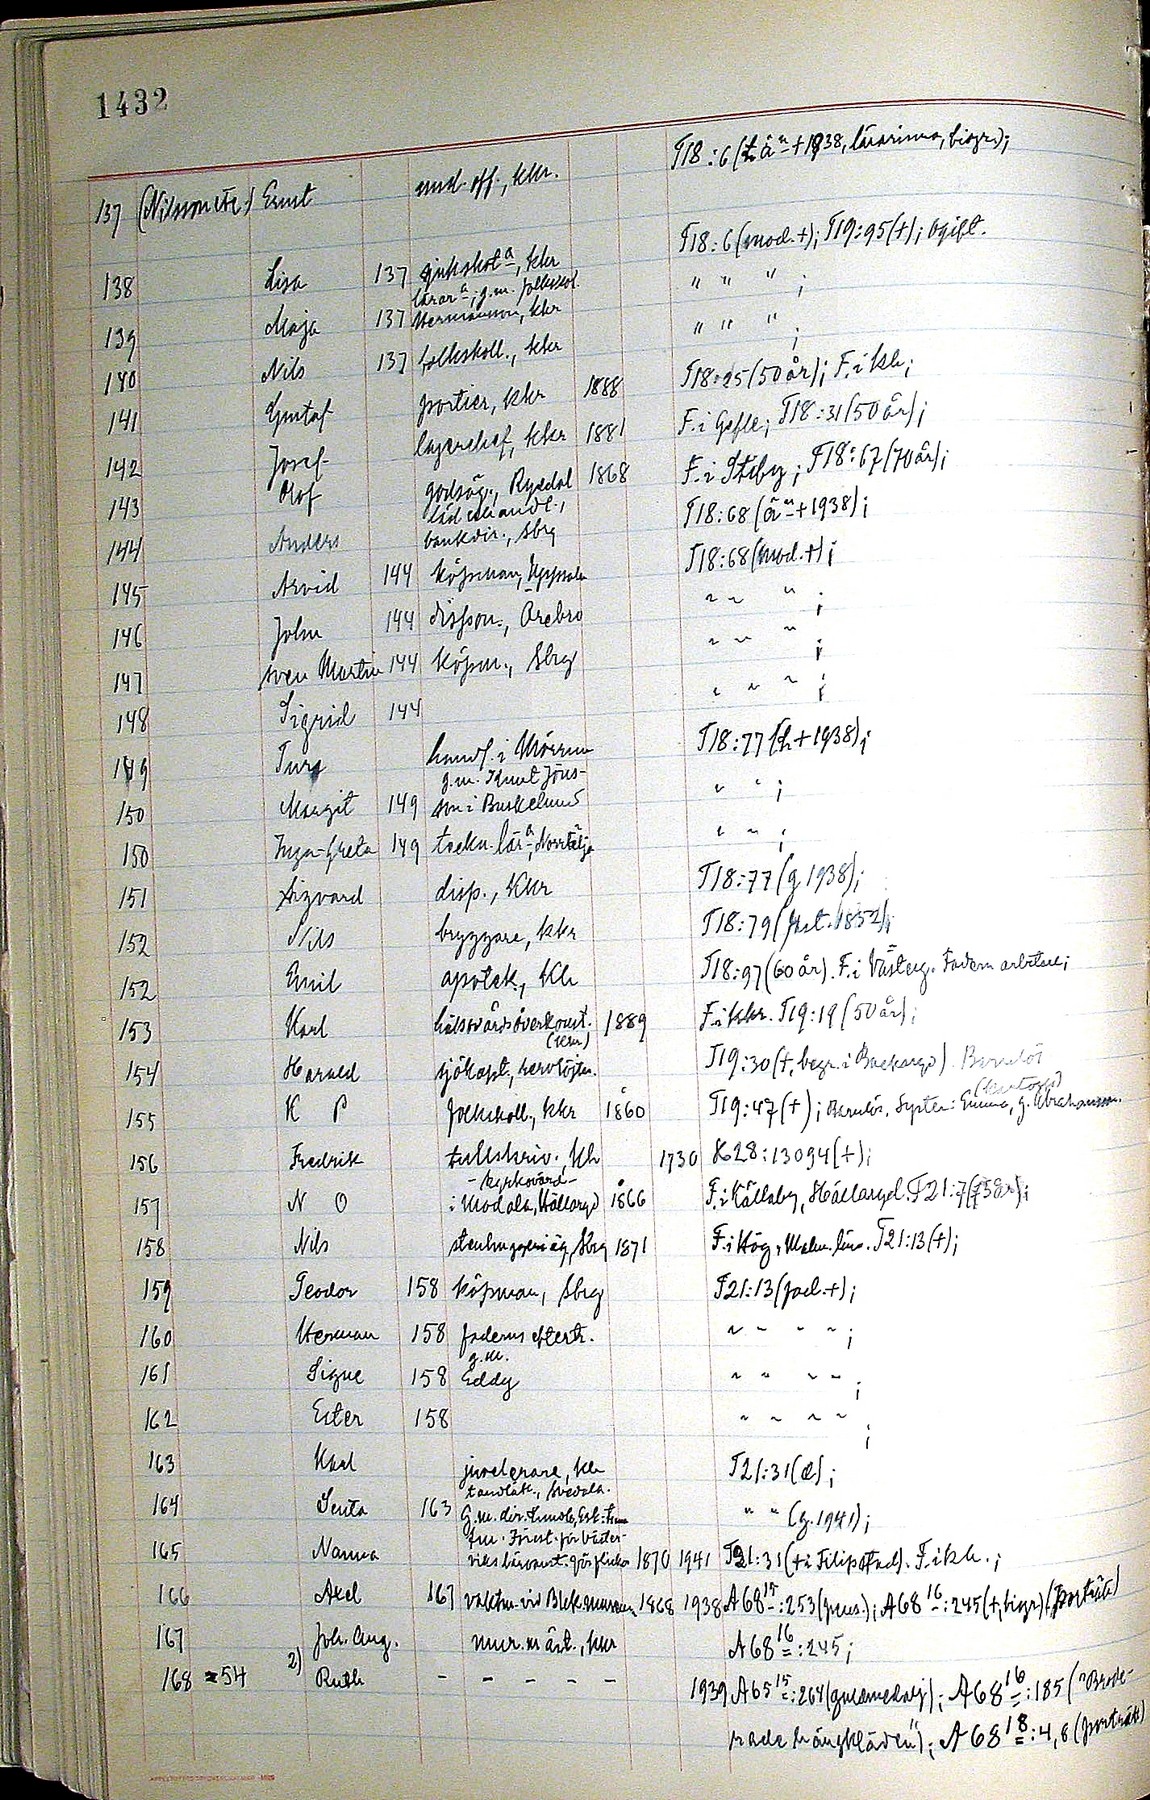 1432
137 (Nilsson etc.) Ernst und. off., kkr. T18:6 (h. å<sup>n</sup> + 1938, lärarinna, biogr.);
138 Lisa 137 sjuksköt<sup>a</sup>, kkr T18:6 (mod. +); T19:95 (+); ogift.
lärar<sup>a</sup>; g.m. folkskol.
139 Maja 137 Hermansson, kkr " " " ;
140 Nils 137 folkskoll., kkr " " " ;
141 Gustaf portier, kkr 1888 T18:25 (50 år); F. i kh;
142 Josef lagerchef, kkr 1881 F. i Gefle; T18:31 (50 år);
143 Olof godsäg., Rysdal 1868 F. i; T18:67 (70 år);
144 Anders bankdir., Sbrg T18:68 (å<sup>n</sup> + 1938);
145 Arvid 144 köpman, Uppsala T18:68 (mod. +);
146 John 144 dispon., Örebro " " " ;
147 Sven Martin 144 köpm., Sbrg " " " ;
148 Sigrid 144 " " " ;
149 Ture handl. i Mörrum T18:77 (h + 1938);
g.m. Knut Jöns-
150 Margit 149 son i Buskelund " " ;
150 Inga-Greta 149 teckn. lär<sup>a</sup>, Norrtälje " " ;
151 Sigvard disp., kkr T18:77 (g 1938);
152 Nils bryggare, kkr T18:79 (fast. 1852);
152 Emil apotek., kh T18:97 (60 år). F. i Västerg. Fadern arbetare;
153 Karl hälsovårdsöverkonst. 1889 F. i kkr. T19:19 (50 år);
154 Harald sjökapt., reservlöjtn. T19:30 (+, begr. i Backaryd). Barnlös
155 K P folkskoll., kkr 1860 T19:47 (+); Barnlös. Syster: Emma, g. Abrahamson.
156 Fredrik tullskriv., kh 1730 K28:13094 (+);
- kyrkovärd -
157 N O i Modala, Hällaryd 1866 F. i Källaby, Hällaryd. T21:7 (75 år);
158 Nils Sbrg 1871 F. i Hög, Malm. län. T21:13 (+);
159 Teodor 158 köpman, Sbrg T21:13 (fad. +);
160 Herman 158 faderns eftertr. " " " " ;
g.m.
161 Signe 158 Eddy " " " " ;
162 Ester 158 " " " " ;
163 Karl juvelerare, kh T21:31 (d);
tandläk., Svedala.
164 Senta 163 g.m. dir. " " (g. 1941);
165 Nanna Först. för Väster-
viks lärovrt. för flickor 1870 1941 T21:31 (+ i Filipstad). F. i kh.;
166 Axel 167 vaktm. vid Blek. museum 1868 1938 A68<sup>15</sup>:253 (); A68<sup>16</sup>:245 (+, biogr.) (porträtt)
167 Joh. Aug. mur.mäst., kkr A68<sup>16</sup>:245;
168 = 54 2) Ruth - - - - - 1939 A65<sup>15</sup>:264 (guldmedalj); A68<sup>16</sup>:185 ("Brode-
rade hängkläden"); A68<sup>18</sup>:4,8 (porträtt)